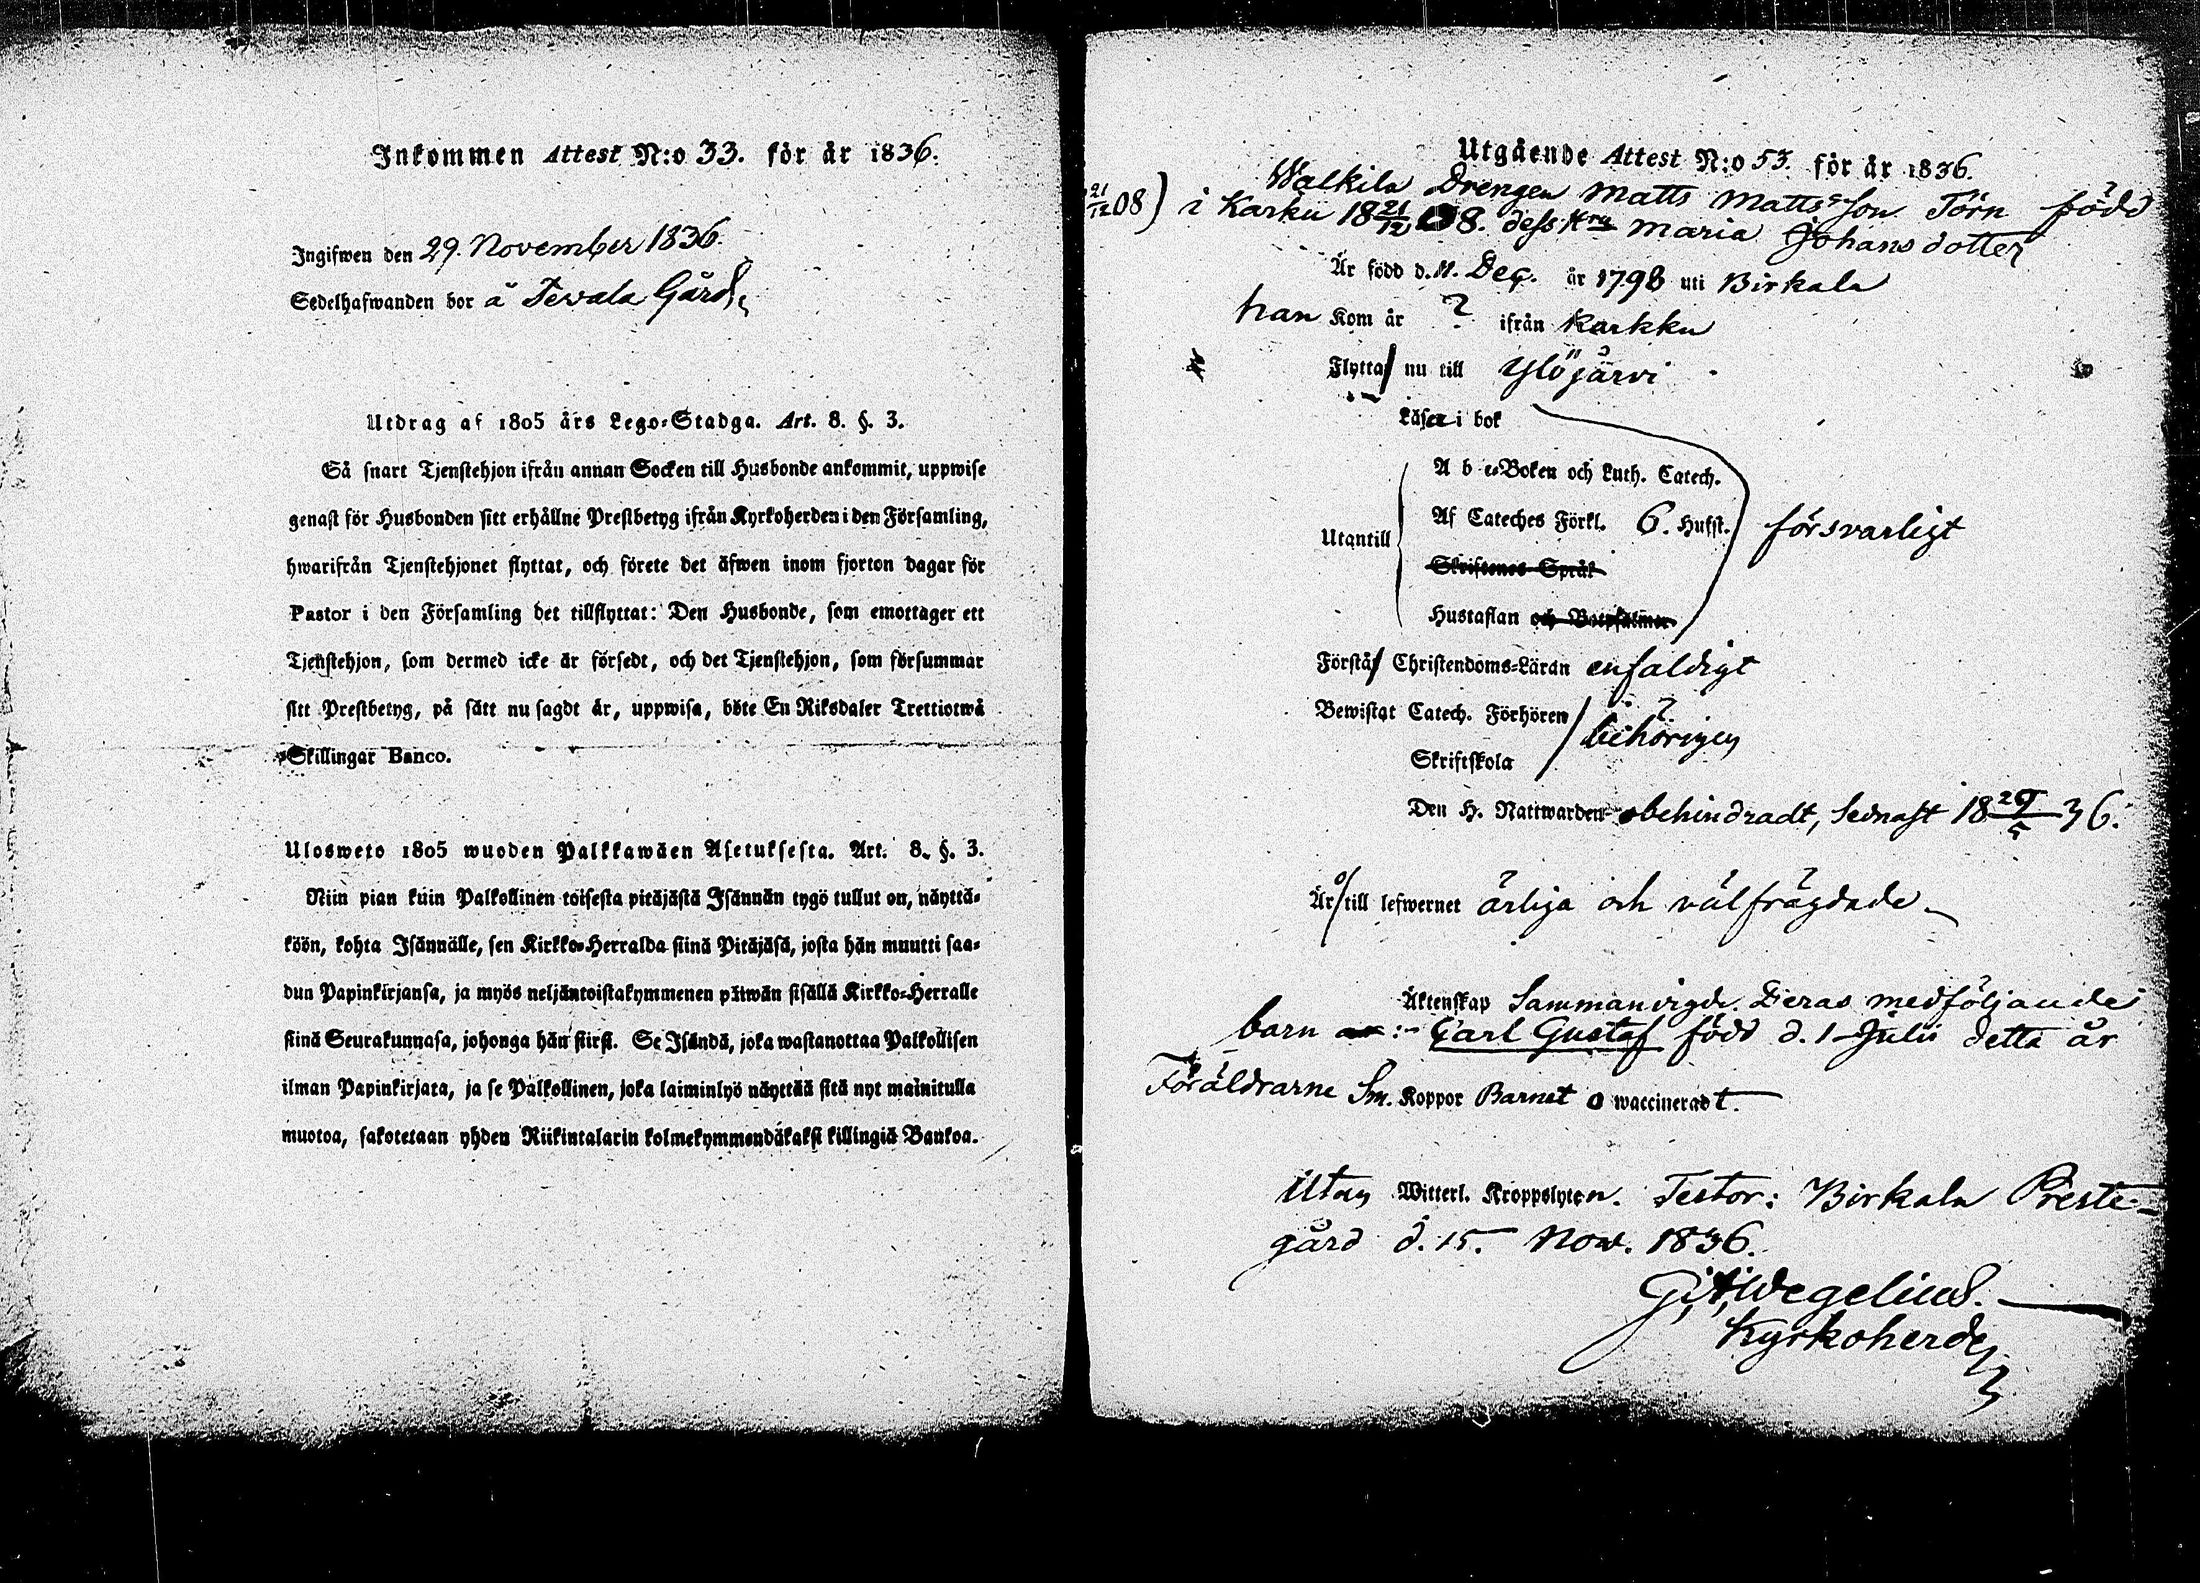 Inkommen Attest N:o 33. för år 1836.
Ingifwen den 29. November 1836.
Sedelhafwanden bor å Tevala Gård.
Utdrag af 1805 års Lego-Stadga. Art. 8. §. 3.
Så snart Tjenstehjon ifrån annan Socken till Husbonde ankommit, uppwise
genast för Husbonden sitt erhållne Prestbetyg ifrån Kyrkoherden i den Församling,
hwarifrån Tjenstehjonet flyttat, och förete det äfwen inom fjorton dagar för
Pastor i den Församling det tillflyttat: Den Husbonde, som emottager ett
Tjenstehjon, som dermed icke är försedt, och det Tjenstehjon, som försummar
sitt Prestbetyg, på sätt nu sagdt är, uppwisa, böte En Riksdaler Trettiotwå
Skillingar Banco.
Ulosweto 1805 wuoden Palkkawäen Asetuksesta. Art. 8. §. 3.
Niin pian kuin Palkollinen toisesta pitäjästä Isännän tygö tullut on, näyttä-
köön, kohta Isännälle, sen Kirkko-Herralda siinä Pitäjäsä, josta hän muutti saa-
dun Papinkirjansa, ja myös neljäntoistakymmenen päiwän sisällä Kirkko-Herralle
siinä Seurakunnasa, johonga hän siirsi. Se Isändä, joka wastanottaa Palkollisen
ilman Papinkirjata, ja se Palkollinen, joka laiminlyö näyttää sitä nyt mainitulla
muotoa, sakotetaan yhden Riikintalarin kolmekymmendäkaksi killingiä Bankoa.
Utgående Attest N:o 53. för år 1836.
Walkila Drengen Matts Mattsson Törn född
21/12 08) i Karku 18 21/12 08. dess Hru Maria Johansdotter
Är född d. 11. Dec. år 1798 uti Birkala
han Kom år ? ifrån Karkku
Flytta nu till Ylöjärvi
Läsa i bok
A b c-Boken och Luth. Catech.
Utantill Af Cateches Förkl. 6. Hufst. försvarligt
Skriftenes Språk
Hustaflan och Botpsalmer
Förstå Christendoms-Läran enfaldigt
Bewistat Catech. Förhören behörigen
Skriftskola
Den H. Nattwarden obehindradt, Sednast 18 29/5 36.
Är till lefwernet ärliga och välfrägdade
Äktenskap Sammanvigde. Deras medföljande
barn : Carl Gustaf född d. 1 Julii detta år
Föräldrarne Sm. Koppor Barnet o waccineradt.
Utan Witterl. Kroppslyten. Testor: Birkala Preste-
gård d. 15. Nov. 1836.
G. A. Wegelius.
Kyrkoherde